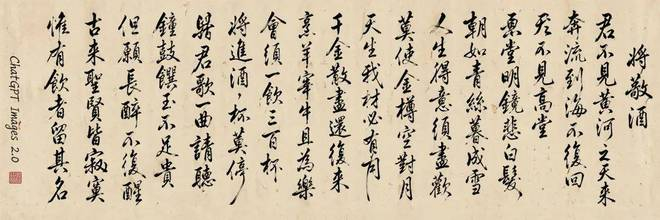 将敬酒
君不見黄河之天来
奔流到海不復回
不見高堂
堂明鏡悲白髮
朝如青絲暮成雪
人生得意須盡歡
莫使金樽空對月
天生我材必有
千金散盡還復来
烹羊宰牛且為樂
會須一飲三百杯
将進酒 杯莫停
君歌一曲請聽
鐘鼓饌玉不足貴
但願長醉不復醒
古来聖賢皆寂寞
惟有飲者留其名
ChatGPT Images 2.0